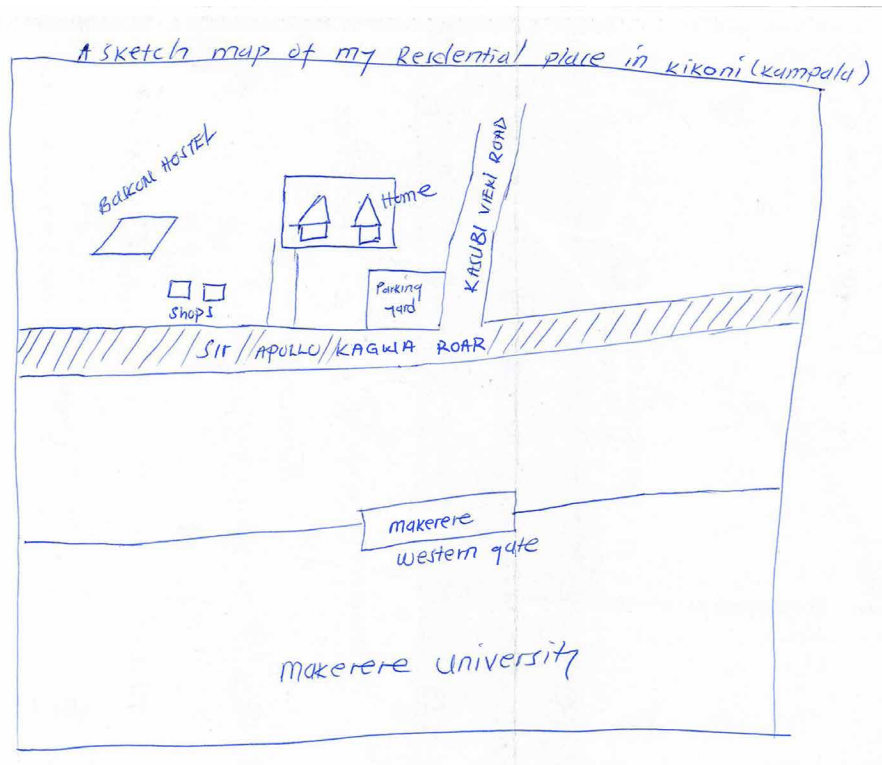 A sketch map of my Residential place in kikoni (kampala)
BALKON HOSTEL
Home
KASUBI VIEW ROAD
Parking
yard
Shops
Sir APOLLO KAGWA ROAR
makerere
western gate
makerere university